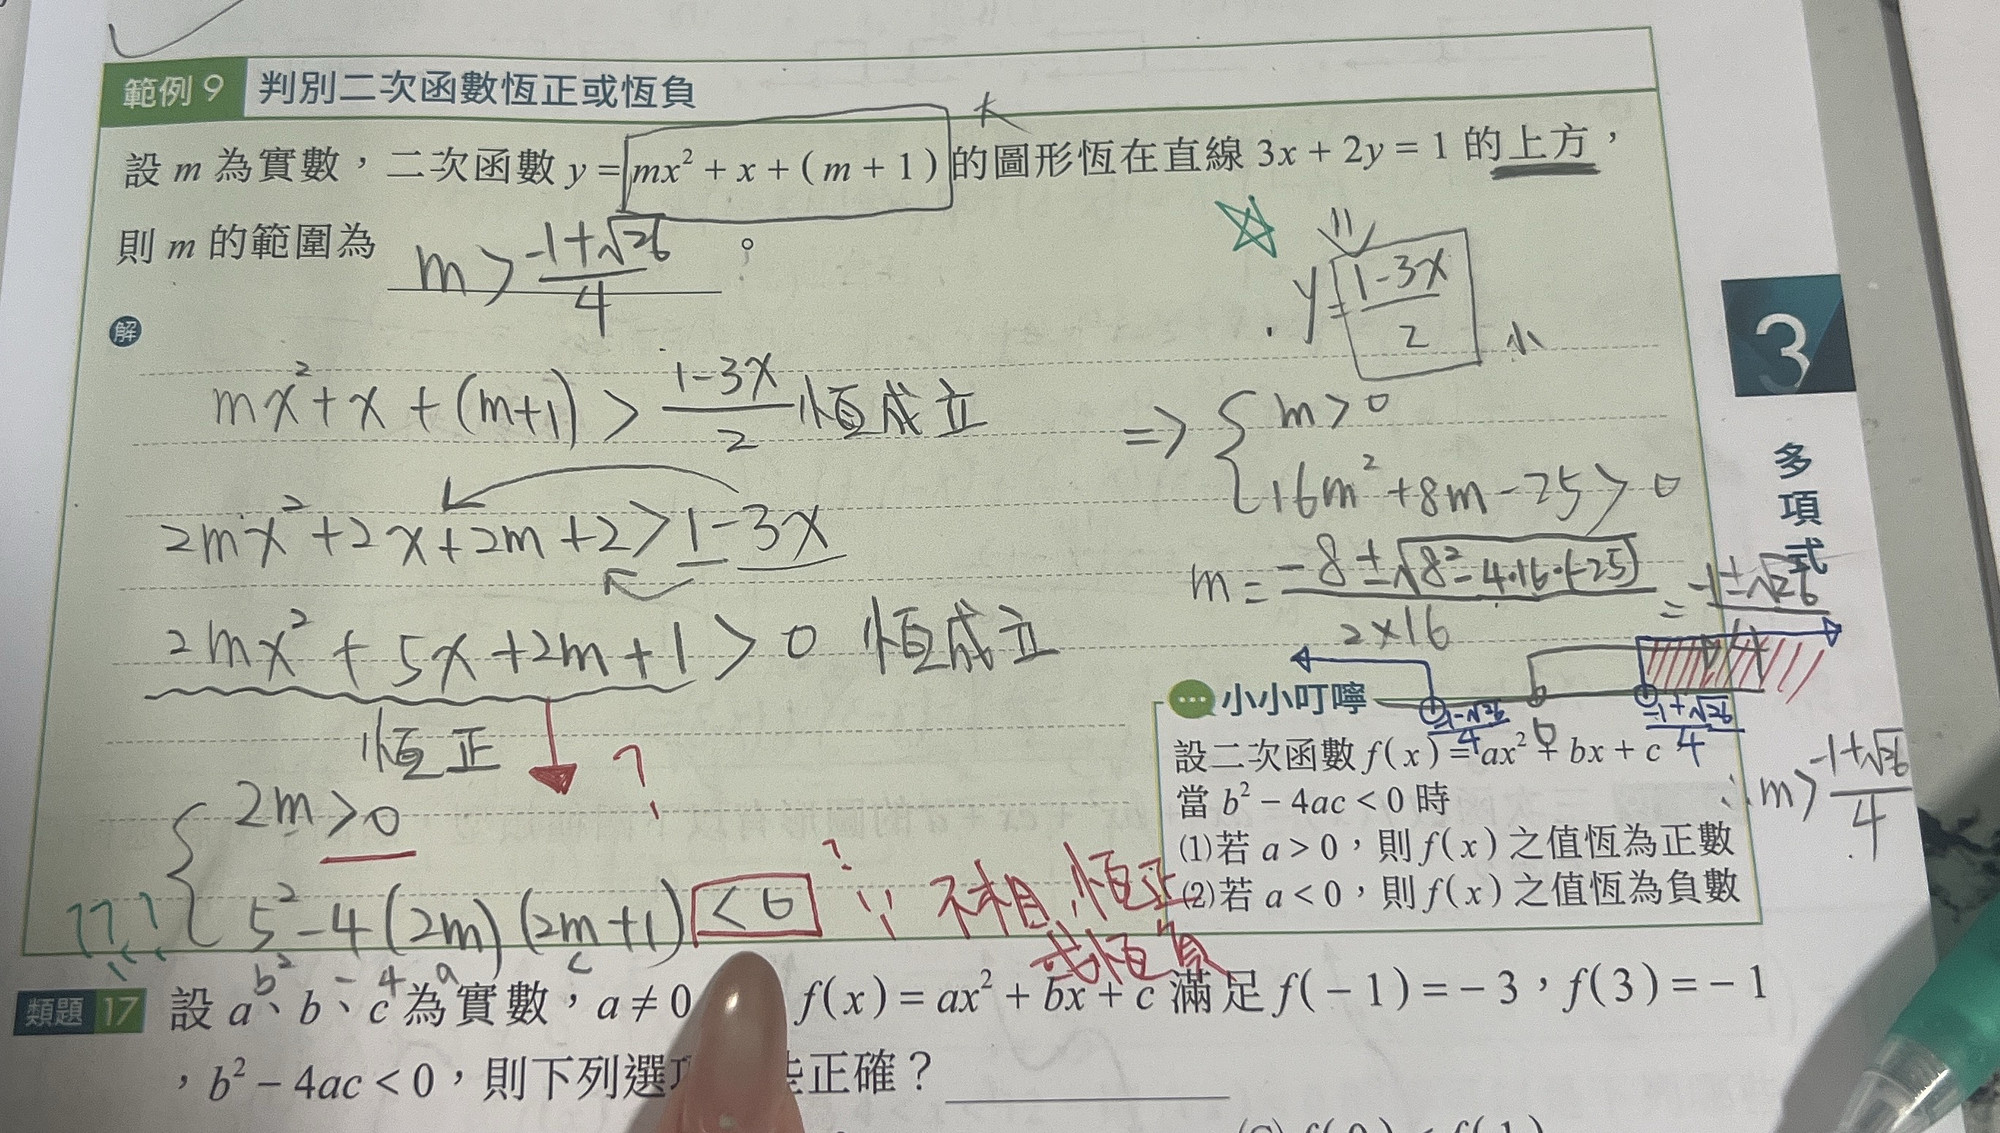 範例 9 判別二次函數恆正或恆負
大
設 m 為實數，二次函數 y = mx² + x + ( m + 1 ) 的圖形恆在直線 3x + 2y = 1 的上方，
則 m 的範圍為 m > (-1+√26)/4 。
y = (1-3x)/2 小
解
mx² + x + (m+1) > (1-3x)/2 恆成立
2mx² + 2x + 2m + 2 > 1 - 3x
2mx² + 5x + 2m + 1 > 0 恆成立
恆正 ?
{ 2m > 0
5² - 4 (2m) (2m+1) < 0 ?
b² - 4 a c
??? 
∵ 不相 恆正
或恆負
=> { m > 0
16m² + 8m - 25 > 0
m = (-8 ± √(8² - 4·16·(-25)))/(2×16) = (-1±√26)/4
(-1-√26)/4 0 (-1+√26)/4
∴ m > (-1+√26)/4
小小叮嚀
設二次函數 f( x ) = ax² + bx + c
當 b² − 4ac < 0 時
(1)若 a > 0，則 f( x ) 之值恆為正數
(2)若 a < 0，則 f( x ) 之值恆為負數
3
多項式
類題 17 設 a、b、c 為實數，a ≠ 0 f( x ) = ax² + bx + c 滿足 f( − 1 ) = − 3，f( 3 ) = − 1
，b² − 4ac < 0，則下列選 正確？